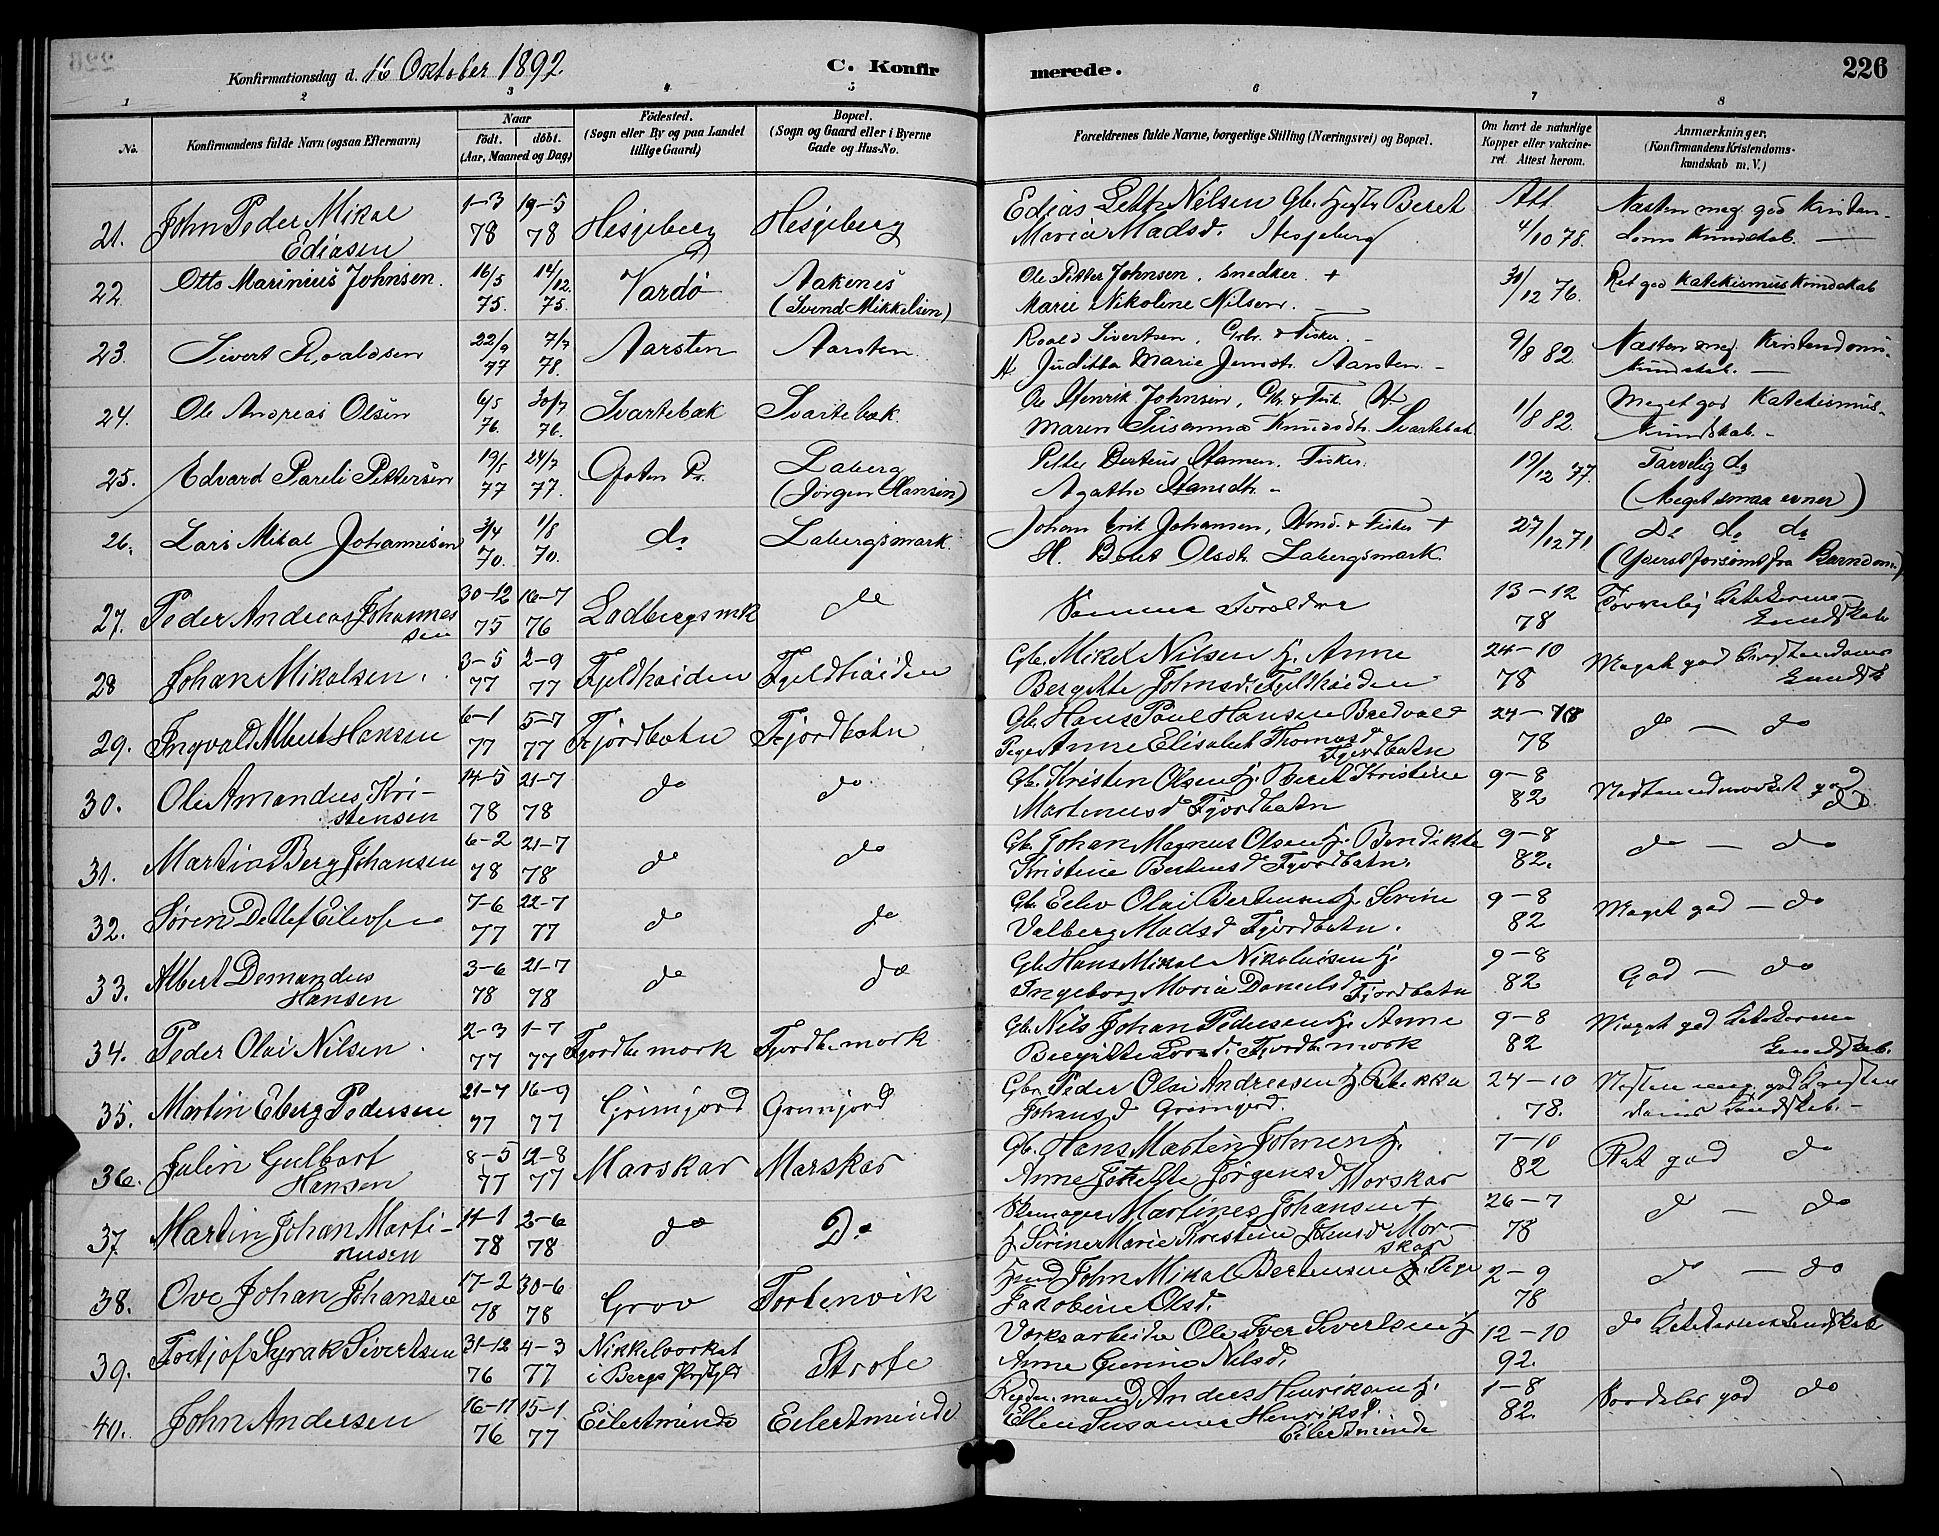 Konfirmationsdag d. 16 Oktober 1892.
C. Konfirmerede.
226
1 2 3 4 5 6 7 8
No.
Konfirmandens fulde Navn (ogsaa Efternavn)
Naar
født. døbt.
(Aar, Maaned og Dag)
Fødested.
(Sogn eller By og paa Landet
tillige Gaard)
Bopæl.
(Sogn og Gaard eller i Byerne
Gade og Hus-No.
Forældrenes fulde Navne, borgerlige Stilling (Næringsvei) og Bopæl.
Om havt de naturlige
Kopper eller vakcine-
ret. Attest herom.
Anmærkninger.
(Konfirmandens Kristendoms-
kundskab m. V.)
21. John Peder Mikal Ediasen 1-3 78 19-5 78 Hesjeberg Hesjeberg
Edias Nilsen Gbr. Hustr. Beret
Maria Madsd. Hesjeberg
Att. 4/10 78.
Næsten meg. god Kristen-
doms Kundskab. —
22. Otto Marinius Johnsen. 16/5 75. 14/12. 75. Vardø Aakenes (Svend Mikkelsen)
Ole Petter Johnsen, Snedker. +
Marie Nikoline Nilsen.
31/12 76.
Ret god Katekismuskundskab
23. Sivert Roaldsen 22/9 77 7/7 78. Aarsten Aarsten.
Roald Sivertsen, Gbr. & Fisker. -
H. Juditha Marie Jensdr. Aarsten -
9/8 82.
Næsten meg. Kristendoms-
kundskab. —
24. Ole Andreas Olsen 6/5 76. 30/7 76. Svartebæk Svartebæk.
Ole Henrik Johnsen, Gbr. & Fisk. H
Maren Susanna Knudsdtr. Svartebæk
1/8 82.
Meget god Katekismus-
kundskab. -
25. Edvard Pareli Pettersen 19/5 77 24/7 77. Ofoten Pr. Laberg (Jørgen Hansen)
Petter Berteus Hansen. Fisker.
Agathe Hansdtr. -
19/12 77.
Tarvelig do
(Meget smaa evner)
26. Lars Mikal Johannesen 3/4 70. 1/8 70. do Labergsmark.
Johan Erik Johansen, Hmd. & Fisker +
H. Beret Olsdtr. Labergsmark.
27/12 71.
Do do do
(Yderst forsømt fra Barndom.)
27. Peder Andreas Johannessen 30-12 75 16-7 76 Ladbergsmk do
Samme Foreldre
13-12 78
Tarvelig Katekismus-
kundskab
28 Johan Mikalsen. 3-5 77 2-9 77 Fjeldheiden Fjeldheiden
Gbr. Mikal Nilsen H. Anne
Bergitte Johnsd. Fjeldheiden
24-10 78
Meget god Kristendoms
kundsk.
29. Ingvald Albert Hansen 6-1 77 5-7 77 Fjordbotn Fjordbotn
Gbr. Hans Paul Hansen Bredvold
Pige Anne Elisabet Thomasd. Fjordbotn
24-10 78
do — do
30. Ole Amandus Kristensen 14-5 78 21-7 78 do do
Gbr. Kristen Olsen H. Beret Kristine
Martinusd. Fjordbotn
9-8 82
god
do
31. Martin Berg Johansen 6-2 78 21-7 78 do do
Gbr. Johan Magnus Olsen H. Bendikte
Kristine Bertensd. Fjordbotn.
9-8 82.
do — do
32. Søren Detlef Eilevsen 7-6 77 22-7 77 do do
Gbr. Eelev Olai Bertensen H. Serine
Valberg Madsd. Fjordbotn.
9-8 82
Meget god — do
33. Albert Demandus Hansen 3-6 78 21-7 78 do do
Gbr. Hans Mikal Nikolaisen H.
Ingeborg Maria Danielsd. Fjordbotn
9-8 82
God — do
34. Peder Olai Nilsen. 2-3 77 1-7 77 Fjordb. mark Fjordb. mark
Gbr. Nils Johan Pedersen H. Anne
Bergitte Larsd. Fjordb. mark
9-8 82
Meget god Katekismus
kundskab.
35. Martin Eberg Pedersen 21-7 77 16-9 77 Grimjord Grimjord
Gbr. Peder Olai Andreasen H. Rebekka
Johansd. Grimjord.
24-10 78.
Nesten meg. god Kristen
doms kundskab. -
36. Julin Gulbart Hansen 8-5 77 12-8 77 Marskar Marskar
Gbr. Hans Martin Johnsen H.
Anne Jørgensd. Marskar
7-10 82
Ret god do
37. Martin Johan Martinusen 14-1 78 2-6 78 do Do
Martines Johansen +
H. Serine Marie Kristine Johnsd. Marskar
26-7 78
do — do
38. Ove Johan Johansen 17-2 78 30-6 78 Grov Fortenvik
John Mikal Bertensen H. Pige
Jakobine Olsd.
2-9 78
do — do
39. Fortjof Syrak Sivertsen 31-12 76 4-3 77 Nikkelverket i Bergs Prstgld Strote
Verksarbeider Ole Iver Sivertsen H.
Anne Nilsd.
12-10 92.
do Katekismuskundskab
40. John Andersen 16-11 76 15-1 77 Eilertminde Eilertminde
Anders Henriksen H.
Ellen Susanne Henriksd. Eilertminde
1-8 82.
Særdeles god do